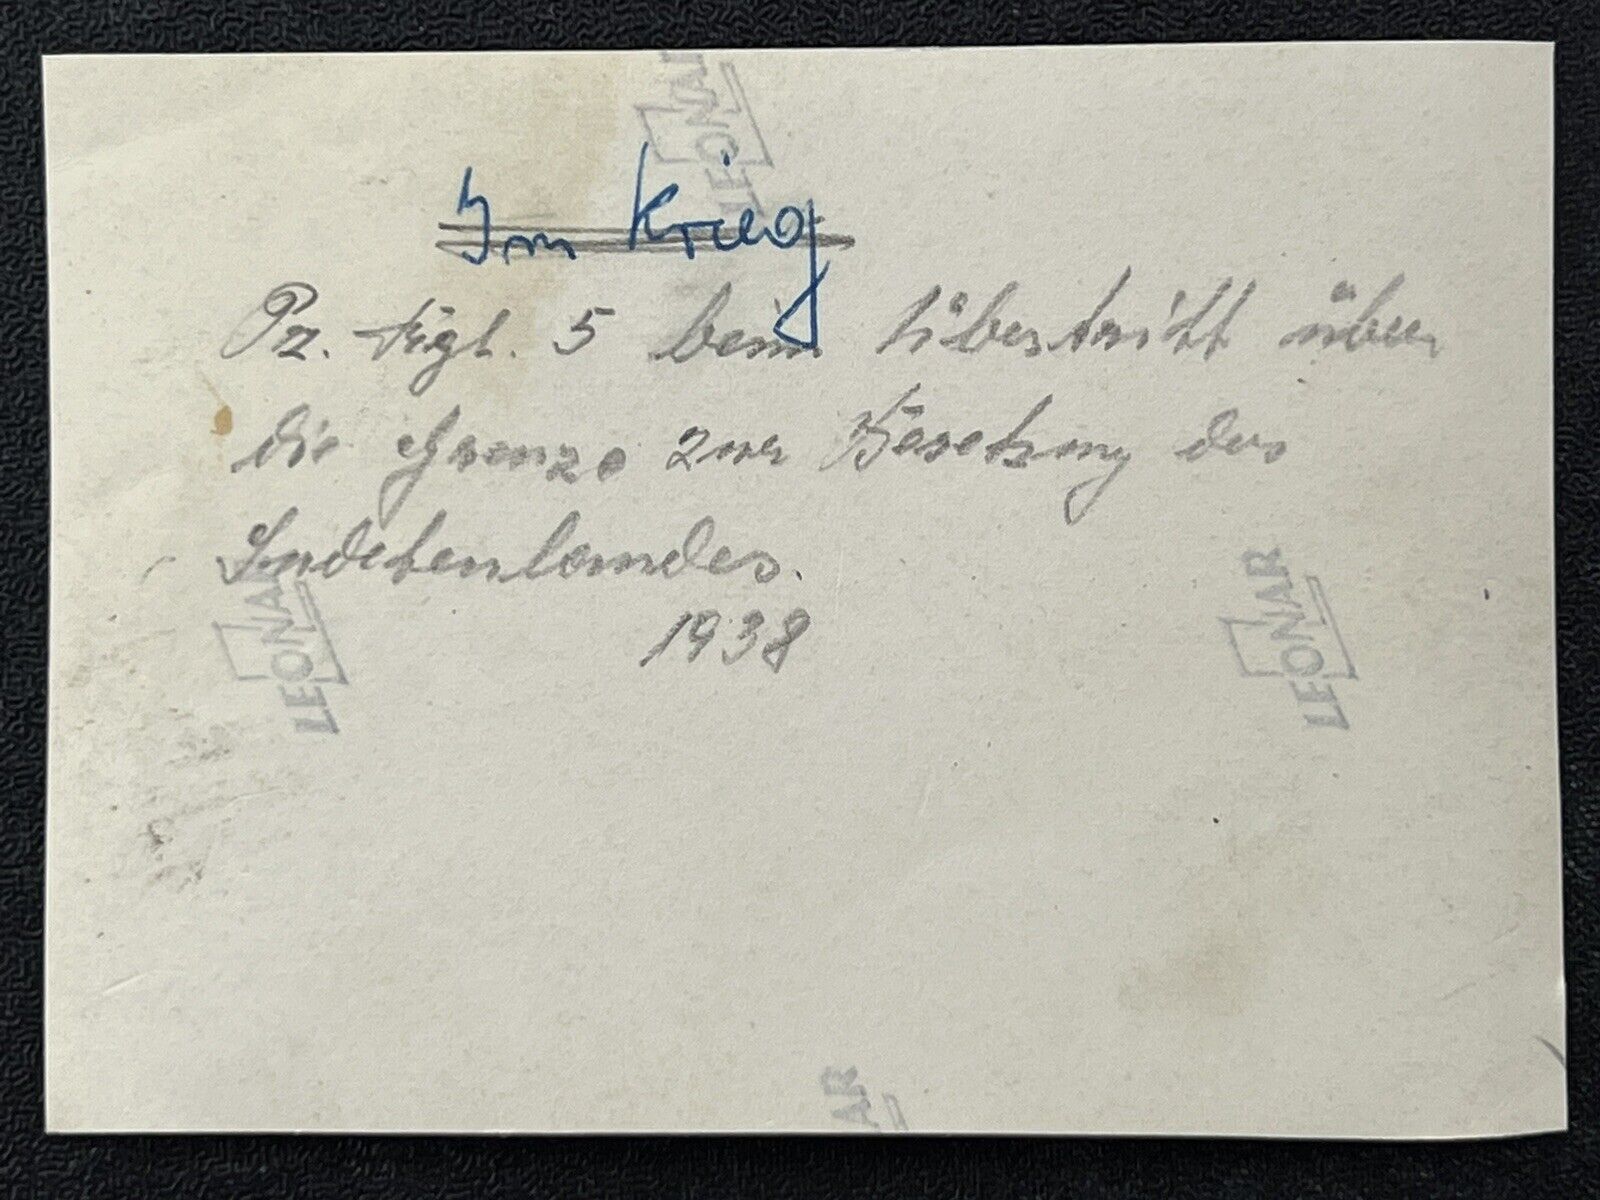 LEONAR
Im Krieg
Pz. Rgt. 5 beim Übertritt über
die Grenze zur Besetzung des
Sudetenlandes.
1938
LEONAR
LEONAR
AR